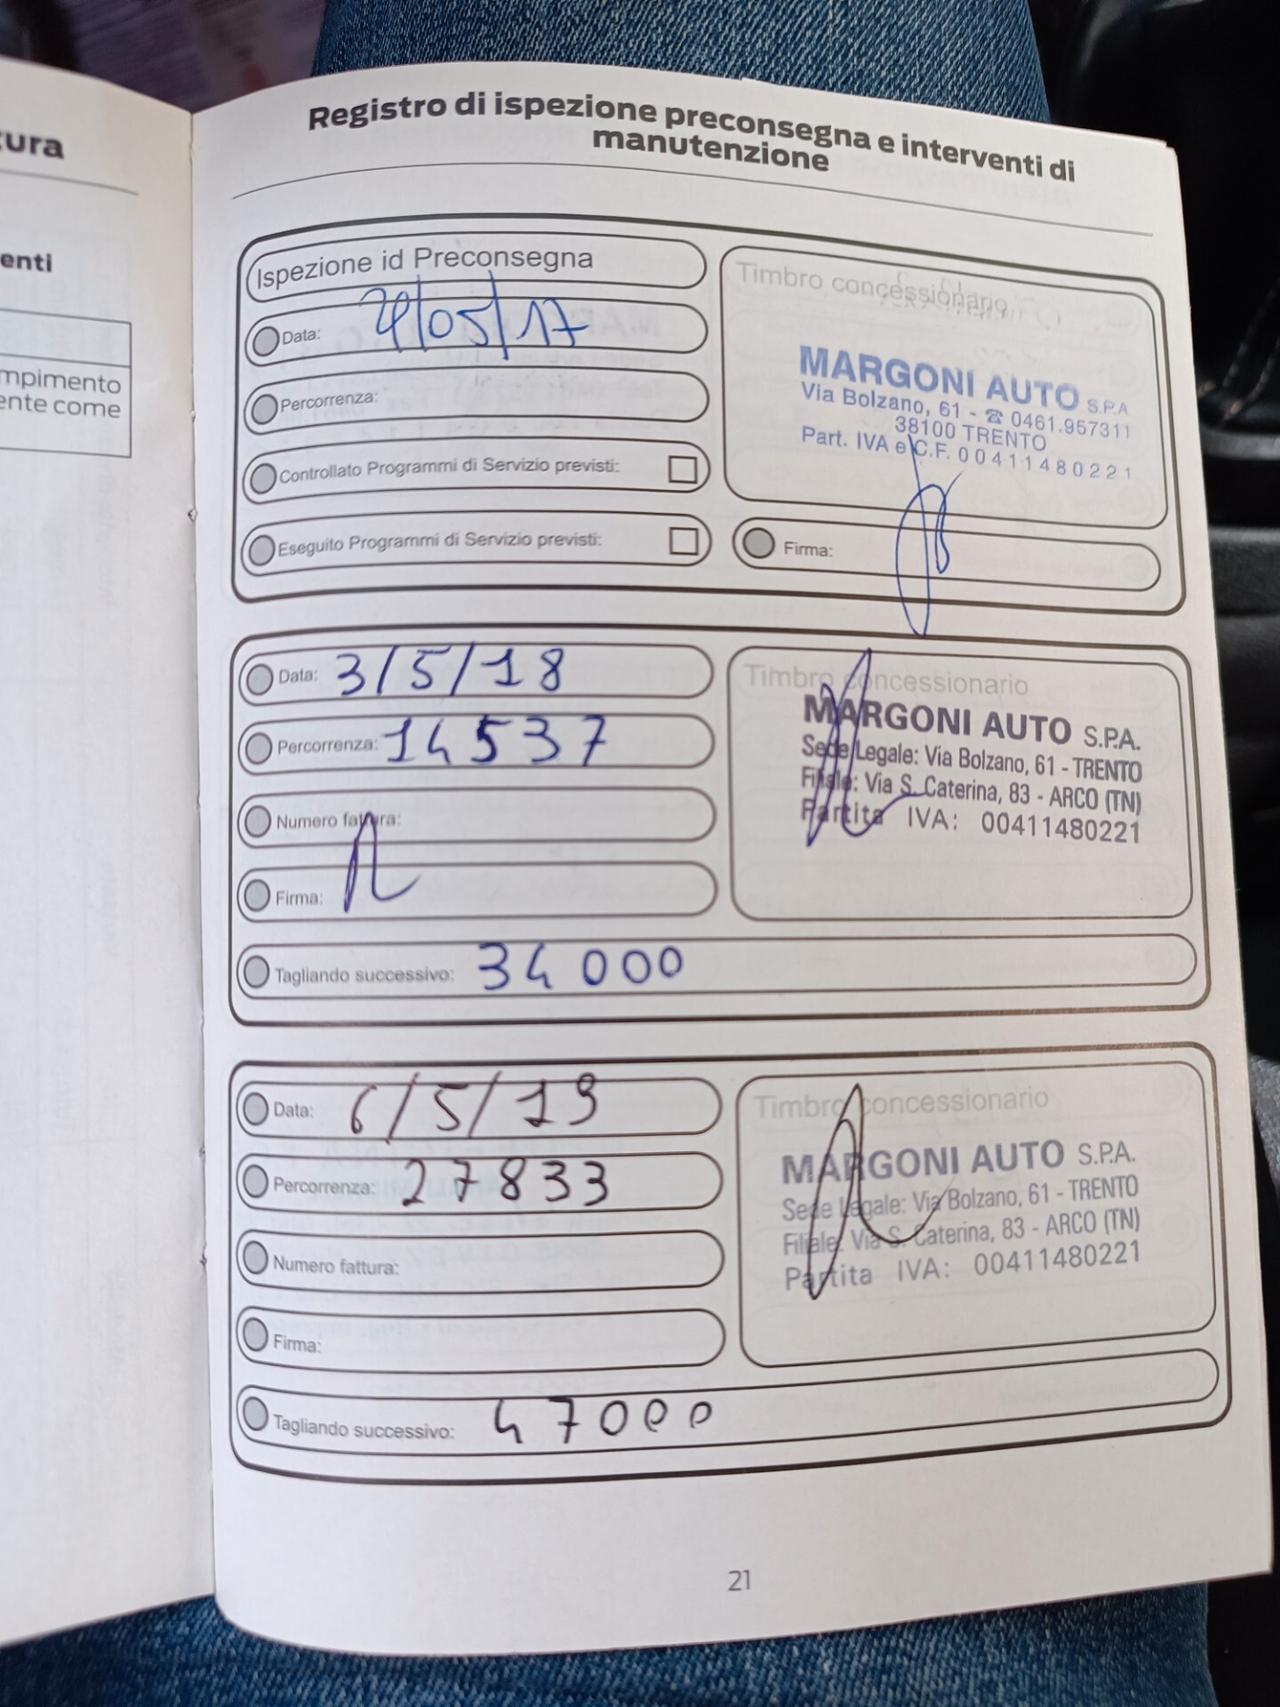 tura
enti
mpimento
ente come
Registro di ispezione preconsegna e interventi di
manutenzione
Ispezione id Preconsegna
Data: /05/17
Percorrenza:
Controllato Programmi di Servizio previsti:
Eseguito Programmi di Servizio previsti:
Timbro concessionario
MARGONI AUTO S.P.A
Via Bolzano, 61 - ☎ 0461.957311
38100 TRENTO
Part. IVA e C.F. 00411480221
Firma:
Data: 3/5/18
Percorrenza: 14537
Numero fattura:
Firma:
Tagliando successivo: 34000
Timbro concessionario
MARGONI AUTO S.P.A.
Sede Legale: Via Bolzano, 61 - TRENTO
Filiale: Via S. Caterina, 83 - ARCO (TN)
Partita IVA: 00411480221
Data: 6/5/19
Percorrenza: 27833
Numero fattura:
Firma:
Tagliando successivo: 47000
Timbro concessionario
MARGONI AUTO S.P.A.
Sede Legale: Via Bolzano, 61 - TRENTO
Filiale: Via S. Caterina, 83 - ARCO (TN)
Partita IVA: 00411480221
21